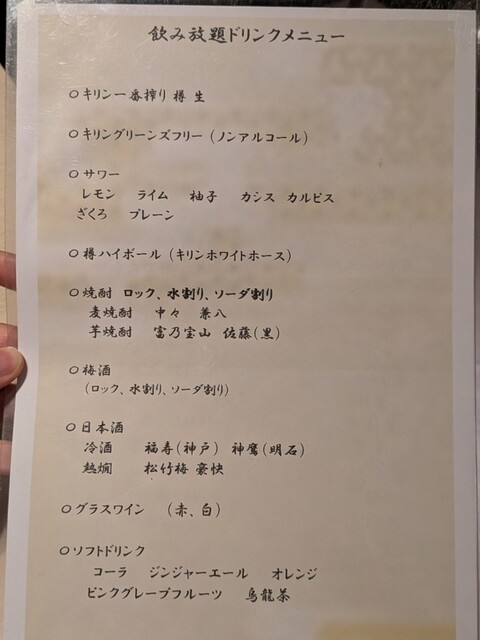 飲み放題ドリンクメニュー
○キリン一番搾り 樽 生
○キリングリーンズフリー (ノンアルコール)
○サワー
レモン ライム 柚子 カシス カルピス
ざくろ プレーン
○樽ハイボール (キリンホワイトホース)
○焼酎 ロック、水割り、ソーダ割り
麦焼酎 中々 兼八
芋焼酎 富乃宝山 佐藤(黒)
○梅酒
(ロック、水割り、ソーダ割り)
○日本酒
冷酒 福寿(神戸) 神鷹(明石)
熱燗 松竹梅 豪快
○グラスワイン (赤、白)
○ソフトドリンク
コーラ ジンジャーエール オレンジ
ピンクグレープフルーツ 烏龍茶